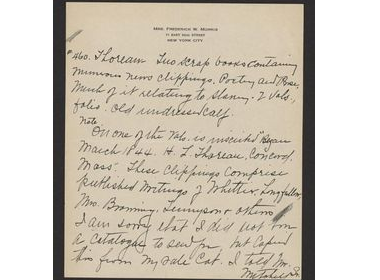 MRS. FREDERICK W. MORRIS
11 EAST 52ND STREET
NEW YORK CITY
#460. Thoreau Two scrap books containing
numerous news clippings, Poetry and Prose,
Much of it relating to slavery. 2 Vols.,
folio. Old undressed calf.
Note
On one of the Vols. is inscribed "Began
March 1844. H. L. Thoreau, Concord,
Mass." These clippings comprise
published writings of Whittier, Longfellow,
Mrs. Browning, Tennyson & others
I am sorry that I did not have
a catalogue to send you, but copied
this from my sale Cat. I told Mr.